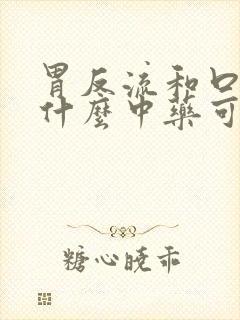 胃反流和口
什麼中藥可
糖心曉乖